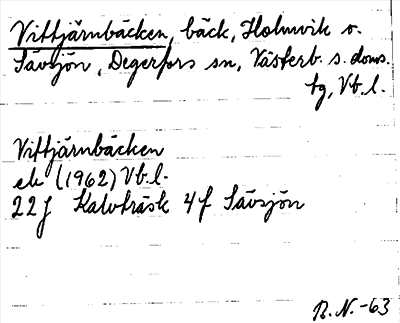 Vittjärnbäcken, bäck, Holmvik o.
Sävsjön, Degerfors sn, Västerb. s. doms.
tg, Vb. l.
Vittjärnbäcken
ek (1962) Vb. l.
22 J Kalvträsk 4 f Sävsjön
R. N. -63